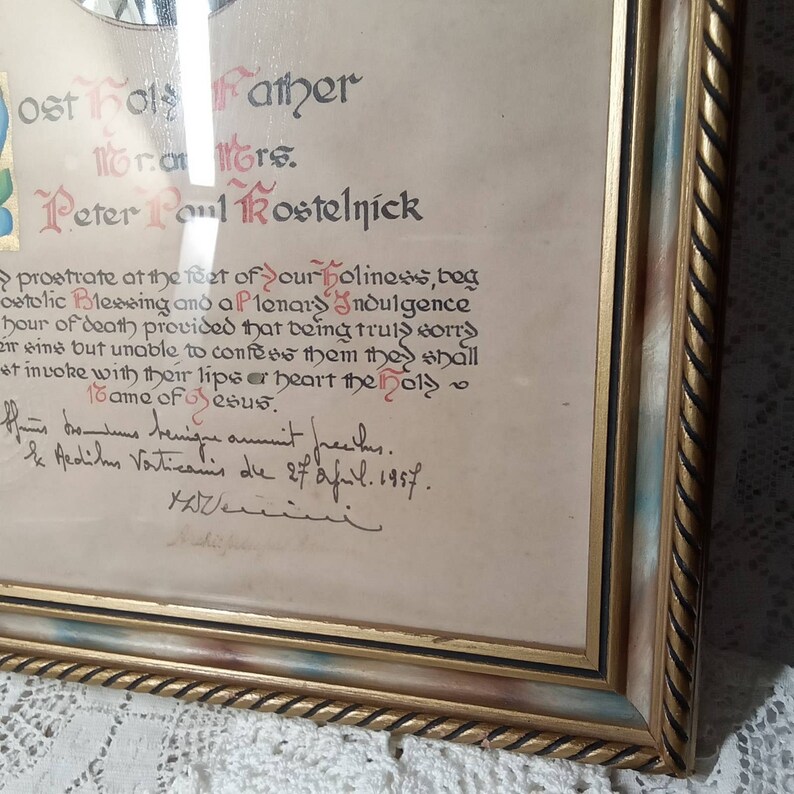 ost Holy Father
Mr. and Mrs.
Peter Paul Kostelnick
y prostrate at the feet of Your Holiness, beg
ostolic Blessing and a Plenary Indulgence
hour of death provided that being truly sorry
eir sins but unable to confess them they shall
st invoke with their lips or heart the Holy
Name of Jesus.
benigne annuit precibus.
Ex Aedibus Vaticanis die 27 April. 1957.